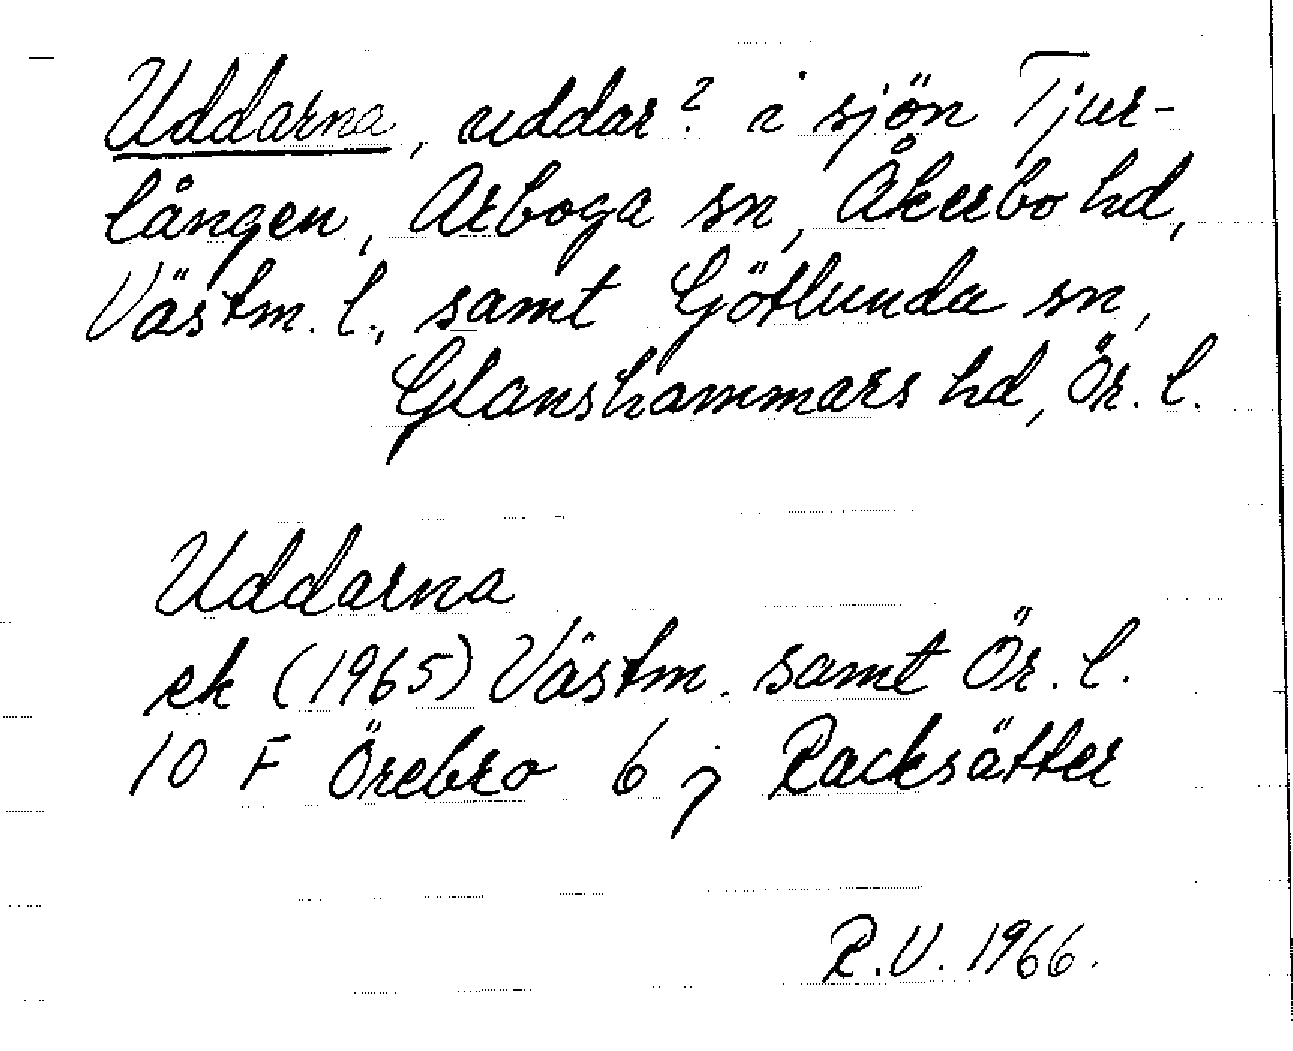 Uddarna, uddar? i sjön Tjur-
lången, Arboga sn, Åkerbo hd,
Västm. l., samt Götlunda sn,
Glanshammars hd, Ör. l.
Uddarna
ek (1965) Västm. samt Ör. l.
10 F Örebro 6 j Racksätter
R.V. 1966.